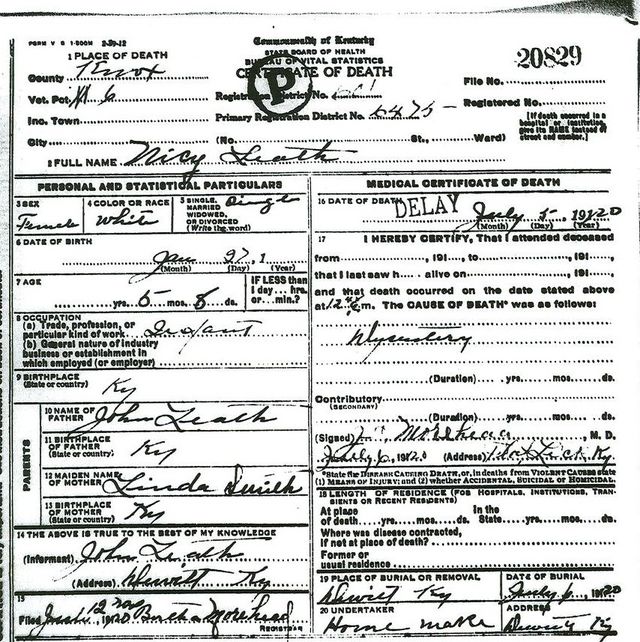 FORM V S 1-500M 2-29-12
Commonwealth of Kentucky
STATE BOARD OF HEALTH
BUREAU OF VITAL STATISTICS
CERTIFICATE OF DEATH
P
20829
1 PLACE OF DEATH
County Knox
Vot. Pct. 6
Inc. Town
City
Registration District No.
Primary Registration District No. 6475
(No. St., Ward)
File No.
Registered No.
[If death occurred in a hospital or institution, give its NAME instead of street and number.]
2 FULL NAME Nicy Leath
PERSONAL AND STATISTICAL PARTICULARS
3 SEX Female
4 COLOR OR RACE White
5 SINGLE, MARRIED WIDOWED, OR DIVORCED (Write the word) Single
6 DATE OF BIRTH
Jan 27, 1
(Month) (Day) (Year)
7 AGE
yrs. 5 mos. 8 ds.
IF LESS than 1 day... hrs. or... min.?
8 OCCUPATION
(a) Trade, profession, or particular kind of work Infant
(b) General nature of industry business or establishment in which employed (or employer)
9 BIRTHPLACE (State or country) Ky
PARENTS
10 NAME OF FATHER John Leath
11 BIRTHPLACE OF FATHER (State or country) Ky
12 MAIDEN NAME OF MOTHER Linda Smith
13 BIRTHPLACE OF MOTHER (State or country) Ky
14 THE ABOVE IS TRUE TO THE BEST OF MY KNOWLEDGE
(Informant) John Leath
(Address) Dewitt Ky
15
Filed 1920 Morehead
REGISTRAR
MEDICAL CERTIFICATE OF DEATH
16 DATE OF DEATH
DELAY
July 5, 1920
(Month) (Day) (Year)
17 I HEREBY CERTIFY, That I attended deceased
from , 191 , to , 191 ,
that I last saw h alive on , 191 ,
and that death occurred on the date stated above
at 12 m. The CAUSE OF DEATH* was as follows:
Dysentery
(Duration) yrs. mos. ds.
Contributory
(SECONDARY)
(Duration) yrs. mos. ds.
(Signed) Morehead, M. D.
July 6, 1920 (Address) Lick, Ky.
*State the DISEASE CAUSING DEATH, or, in deaths from VIOLENT CAUSES state (1) MEANS OF INJURY; and (2) whether ACCIDENTAL, SUICIDAL OR HOMICIDAL.
18 LENGTH OF RESIDENCE (FOR HOSPITALS, INSTITUTIONS, TRANSIENTS OR RECENT RESIDENTS)
At place of death yrs. mos. ds. In the State yrs. mos. ds.
Where was disease contracted, if not at place of death?
Former or usual residence
19 PLACE OF BURIAL OR REMOVAL
Dewitt Ky
DATE OF BURIAL
July 6, 1920
20 UNDERTAKER
Home make
ADDRESS
Dewitt Ky